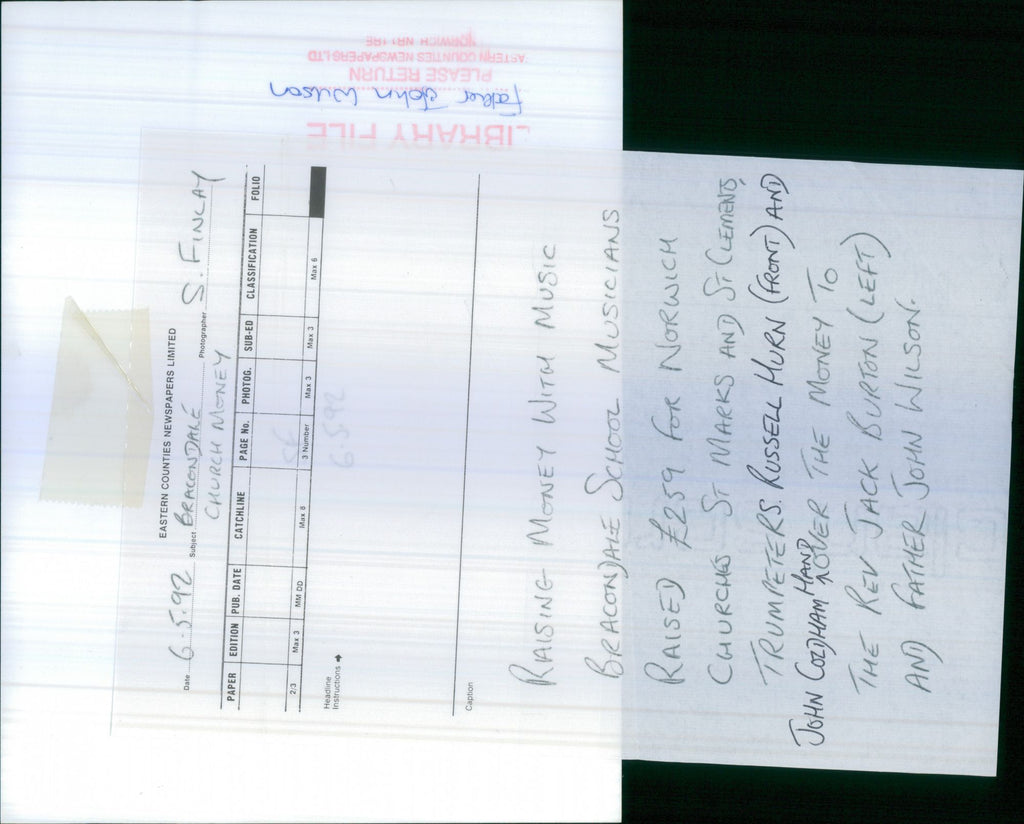 EASTERN COUNTIES NEWSPAPERS LIMITED
Date 6.5.92 Subject BRACONDALE Photographer S. FINLAY
CHURCH MONEY
PAPER EDITION PUB. DATE CATCHLINE PAGE No. PHOTOG. SUB-ED CLASSIFICATION FOLIO
SF
2/3 Max 3 MM DD Max 8 3 Number Max 3 Max 3 Max 6
6.5.92
Headline
Instructions →
Caption
RAISING MONEY WITH MUSIC
BRACONDALE SCHOOL MUSICIANS
RAISED £259 FOR NORWICH
CHURCHES ST MARKS AND ST CLEMENTS,
TRUMPETERS RUSSELL HURN (FRONT) AND
JOHN COLDHAM HAND OVER THE MONEY TO
THE REV JACK BURTON (LEFT)
AND FATHER JOHN WILSON.
LIBRARY FILE
Father John Wilson
PLEASE RETURN
EASTERN COUNTIES NEWSPAPERS LTD
NORWICH NR1 1RE